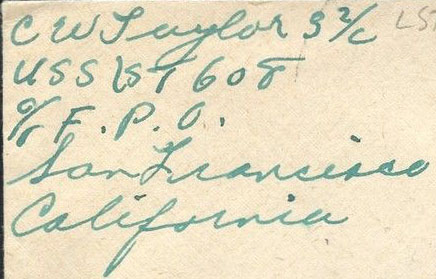 C W Taylor S 2/c LST
USS LST 608
c/o F. P. O.
San Francisco
California